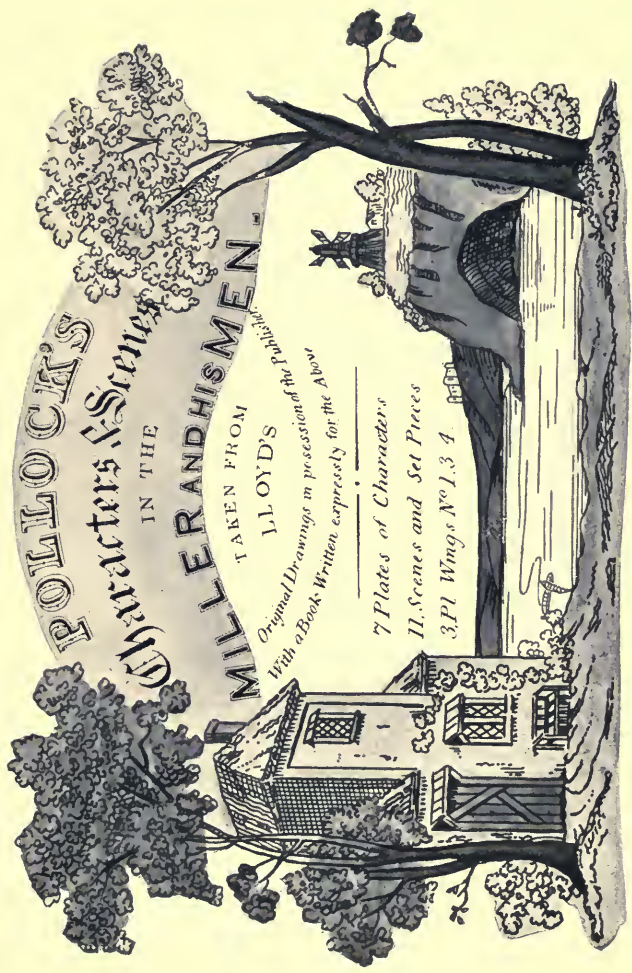 POLLOCK'S
Characters & Scenes
IN THE
MILLER AND HIS MEN.
TAKEN FROM
LLOYD'S
Original Drawings in posession of the Publisher.
With a Book Written expressly for the Above
7 Plates of Characters
11. Scenes and Set Pieces
3. Pl Wings Nº 1. 3 4.